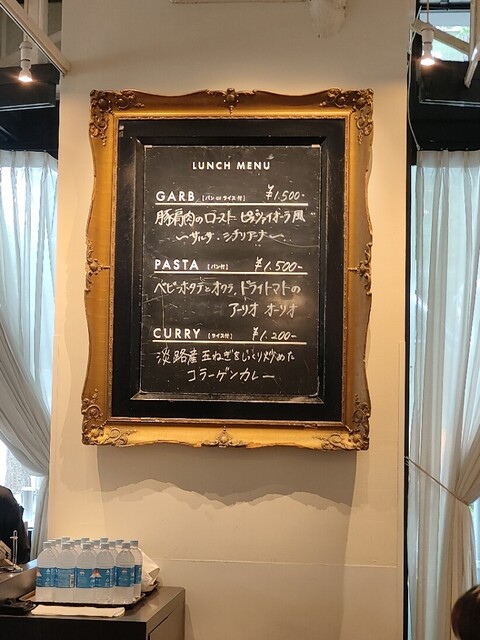 LUNCH MENU
GARB [パン or ライス付] ¥1.500-
豚肩肉のロースト ピッツァイオーラ風
〜サルサ・シチリアーナ〜
PASTA [パン付] ¥1.500-
ベビーホタテとオクラ、ドライトマトの
アーリオ オーリオ
CURRY [ライス付] ¥1.200-
淡路産玉ねぎをじっくり炒めた
コラーゲンカレー